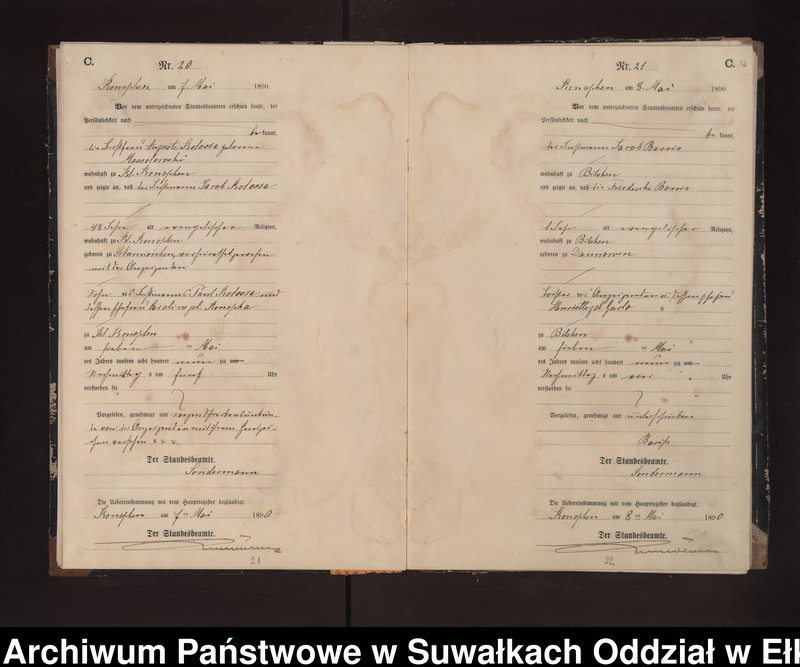 C.
Nr. 20
Konopken am 7. Mai 1890
Vor dem unterzeichneten Standesbeamten erschien heute, der
Persönlichkeit nach
be kannt,
die Instfrau Auguste Kolossa geborene
wohnhaft zu Kl. Konopken
und zeigte an, daß der Instmann Jacob Kolossa
48 Jahr alt evangelischer Religion,
wohnhaft zu Kl. Konopken
geboren zu verheirathet gewesen
mit der Anzeigenden
Sohn des Instmanns Paul Kolossa und
dessen Ehefrau geb. Konopka
zu Kl. Konopken
am sieben ten Mai
des Jahres tausend acht hundert neun zig
Nachmittag s um fünf Uhr
verstorben sei
Vorgelesen, genehmigt und wegen Schreibensunkun-
de von der Anzeigenden mit ihrem Handzei-
chen versehen x x x
Der Standesbeamte.
Sondermann
Die Uebereinstimmung mit dem Hauptregister beglaubigt.
Konopken am 7ten Mai 1890
Der Standesbeamte.
21
Nr. 21
C.
Konopken am 8. Mai 1890
Vor dem unterzeichneten Standesbeamten erschien heute, der
Persönlichkeit nach
be kannt,
der Instmann Jacob
wohnhaft zu Bilsken
und zeigte an, daß die Friederike
1 Jahr alt evangelischer Religion,
wohnhaft zu Bilsken
geboren zu Dannowen
Tochter des Anzeigenden u. dessen Ehefrau
Henriette geb.
zu Bilsken
am sieben ten Mai
des Jahres tausend acht hundert neun zig
Nachmittag s um vier Uhr
verstorben sei
Vorgelesen, genehmigt und unterschrieben
Der Standesbeamte.
Sondermann
Die Uebereinstimmung mit dem Hauptregister beglaubigt.
Konopken am 8ten Mai 1890
Der Standesbeamte.
22
Archiwum Państwowe w Suwałkach Oddział w Eł